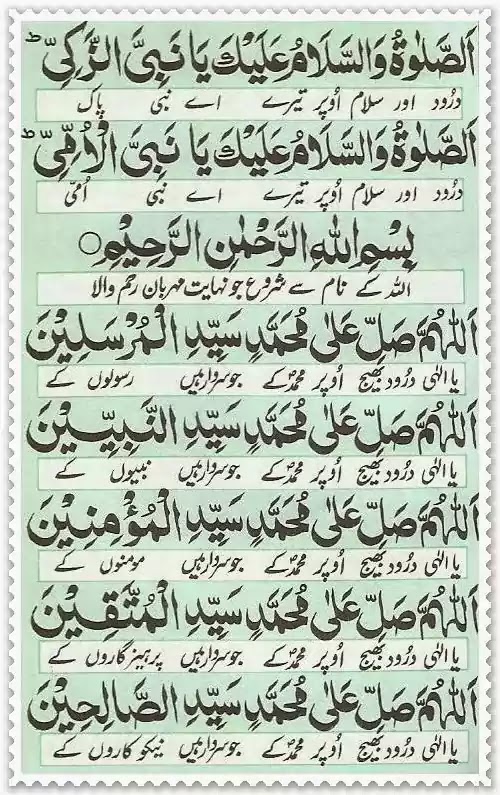 اَلصَّلٰوةُ وَالسَّلَامُ عَلَيْكَ يَا نَبِيَّ الزَّكِيِّ ؕ
درُود اور سلام اُوپر تیرے اے نبی پاک
اَلصَّلٰوةُ وَالسَّلَامُ عَلَيْكَ يَا نَبِيَّ الْاُمِّيِّ ؕ
درُود اور سلام اُوپر تیرے اے نبی اُمّی
بِسْمِ اللهِ الرَّحْمٰنِ الرَّحِيْمِ ○
اللہ کے نام سے شروع جو نہایت مہربان رحم والا
اَللّٰهُمَّ صَلِّ عَلٰى مُحَمَّدٍ سَيِّدِ الْمُرْسَلِيْنَ
یا الٰہی درُود بھیج اُوپر محمدؐ کے جو سردار ہیں رسولوں کے
اَللّٰهُمَّ صَلِّ عَلٰى مُحَمَّدٍ سَيِّدِ النَّبِيّٖيْنَ
یا الٰہی درُود بھیج اُوپر محمدؐ کے جو سردار ہیں نبیوں کے
اَللّٰهُمَّ صَلِّ عَلٰى مُحَمَّدٍ سَيِّدِ الْمُؤْمِنِيْنَ
یا الٰہی درُود بھیج اُوپر محمدؐ کے جو سردار ہیں مومنوں کے
اَللّٰهُمَّ صَلِّ عَلٰى مُحَمَّدٍ سَيِّدِ الْمُتَّقِيْنَ
یا الٰہی درُود بھیج اُوپر محمدؐ کے جو سردار ہیں پرہیزگاروں کے
اَللّٰهُمَّ صَلِّ عَلٰى مُحَمَّدٍ سَيِّدِ الصَّالِحِيْنَ
یا الٰہی درُود بھیج اُوپر محمدؐ کے جو سردار ہیں نیکوکاروں کے